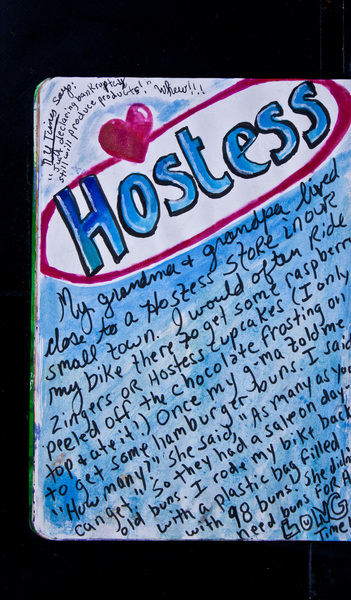 NY Times says:
"Just declaring bankruptcy
still will produce products!" Whew!!!
Hostess
My grandma + grandpa lived
close to a Hostess Store in our
small town. I would often Ride
my bike there to get some raspberry
Zingers OR Hostess Cupcakes (I only
peeled off the chocolate frosting on
top & ate it!) Once my g'ma told me
to get some hamburger buns. I said
"How many?" She said, "As many as you
can get. So they had a sale on day
old buns. I rode my bike back
with a plastic bag filled
with 98 buns! She didn't
need buns for A
LONG
Time!